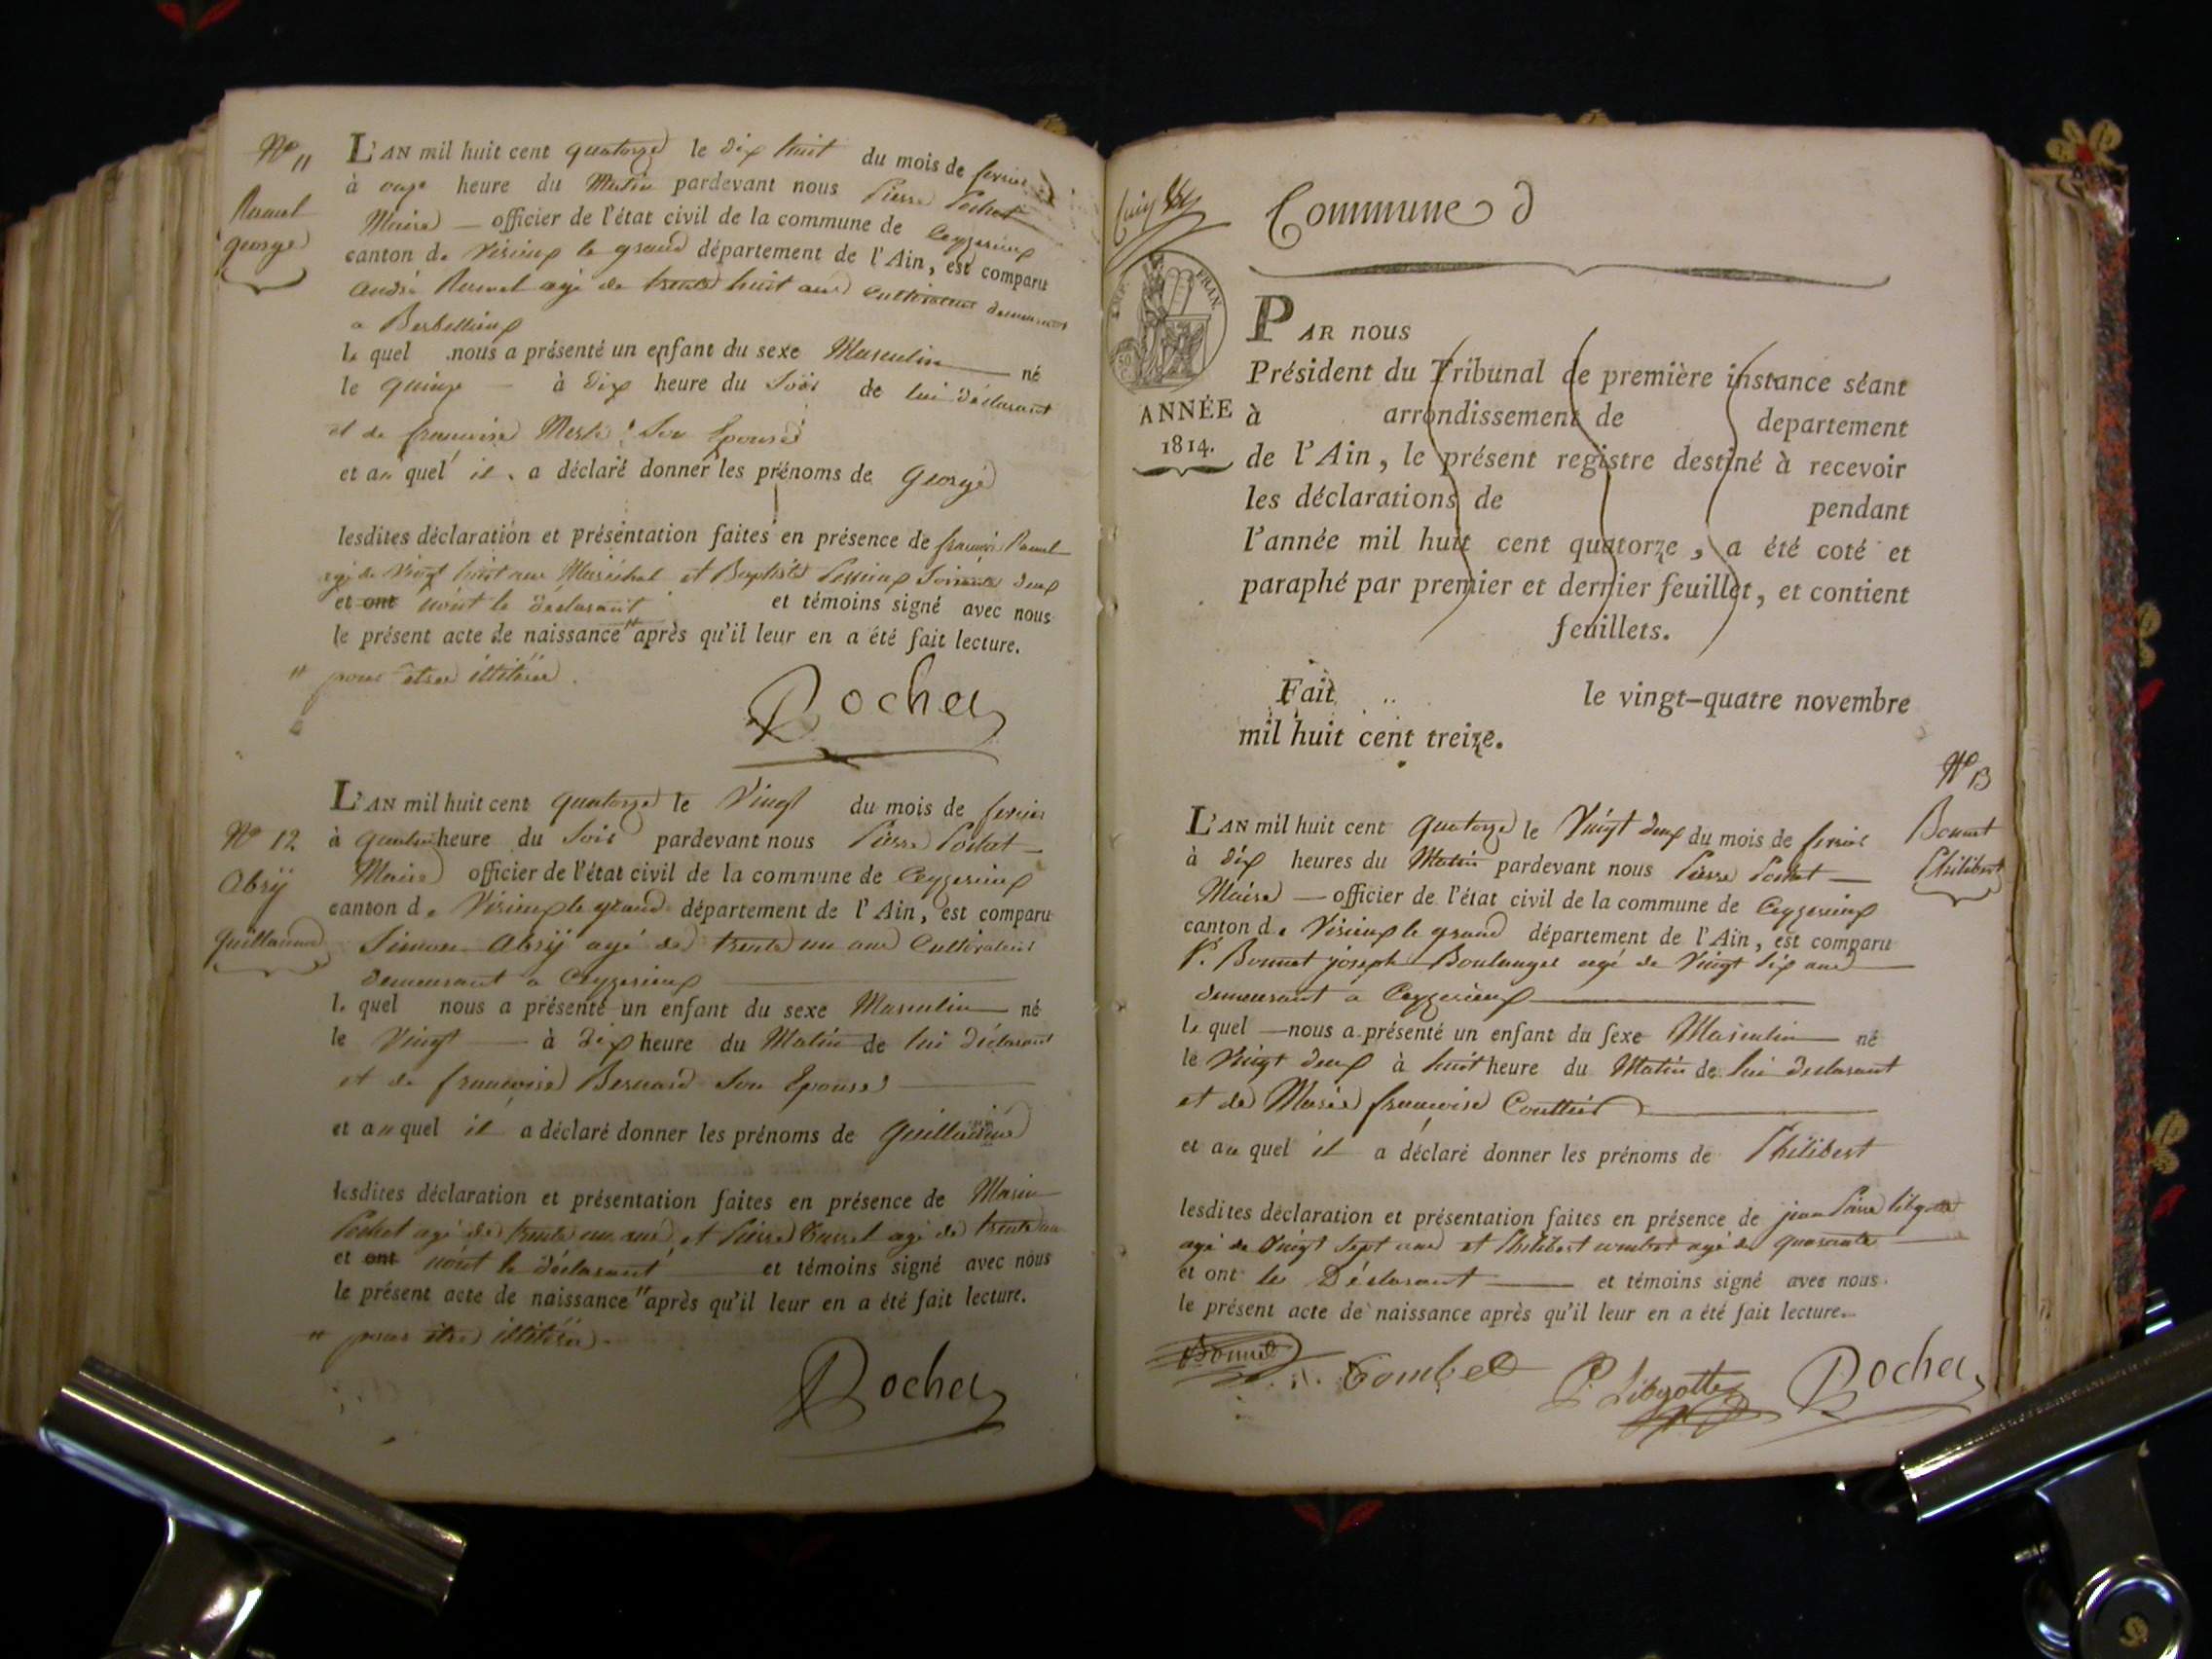 Nº 11
Ravuel
george
L'AN mil huit cent quatorze le dix huit du mois de fevrier
à onze heure du Matin pardevant nous Pierre Pochet
Maire — officier de l'état civil de la commune de Ceyzerieux
canton de Virieux le grand département de l'Ain, est comparu
andré Ravuel agé de trente huit ans Cultivateur demeurant
a Berbellieux
le quel nous a présenté un enfant du sexe Masculin — né
le quinze — à dix heure du Soir de lui déclarant
et de francoise Merle Son Epouse
et au quel il a déclaré donner les prénoms de george
lesdites déclaration et présentation faites en présence de francois Ravuel
agé de vingt huit ans Maréchal et Baptiste Soixante deux
et ont n'ont le déclarant et témoins signé avec nous
le présent acte de naissance " après qu'il leur en a été fait lecture.
" pour être illitéré.
Pochet
Nº 12
Abrÿ
guillaume
L'AN mil huit cent quatorze le Vingt du mois de fevrier
à quatre heure du Soir pardevant nous Pierre Pochet —
Maire officier de l'état civil de la commune de Ceyzerieux
canton de Virieux le grand département de l'Ain, est comparu
Simon Abrÿ agé de trente un ans Cultivateur
demeurant a Ceyzerieux
le quel nous a présenté un enfant du sexe Masculin — né
le Vingt — à dix heure du Matin de lui déclarant
et de francoise Bernard Son Epouse
et au quel il a déclaré donner les prénoms de guillaume
lesdites déclaration et présentation faites en présence de Marin
Pochet agé de trente un ans et Pierre agé de trente un
et ont n'ont le déclarant — et témoins signé avec nous
le présent acte de naissance " après qu'il leur en a été fait lecture.
" pour être illitéré.
Pochet
Commune d
EMP. FRAN.
50 C.
ANNÉE
1814.
PAR nous
Président du Tribunal de première instance séant
à arrondissement de departement
de l'Ain, le présent registre destiné à recevoir
les déclarations de pendant
l'année mil huit cent quatorze, a été coté et
paraphé par premier et dernier feuillet, et contient
feuillets.
Fait le vingt-quatre novembre
mil huit cent treize.
Nº 13
Bonnet
Philibert
L'AN mil huit cent quatorze le Vingt deux du mois de fevrier
à dix heures du Matin pardevant nous Pierre Pochet —
Maire — officier de l'état civil de la commune de Ceyzerieux
canton de Virieux le grand département de l'Ain, est comparu
Sr. Bonnet joseph Boulanger agé de Vingt six ans —
demeurant a Ceyzerieux
le quel — nous a présenté un enfant du sexe Masculin — né
le Vingt deux à huit heure du Matin de lui déclarant
et de Marie francoise Couttier
et au quel il a déclaré donner les prénoms de Philibert
lesdites déclaration et présentation faites en présence de jean Pierre libgotte
agé de Vingt Sept ans et Philibert combet agé de quarante —
et ont le Déclarant — et témoins signé avec nous
le présent acte de naissance après qu'il leur en a été fait lecture.
Bonnet Combet P. Libgotte Pochet